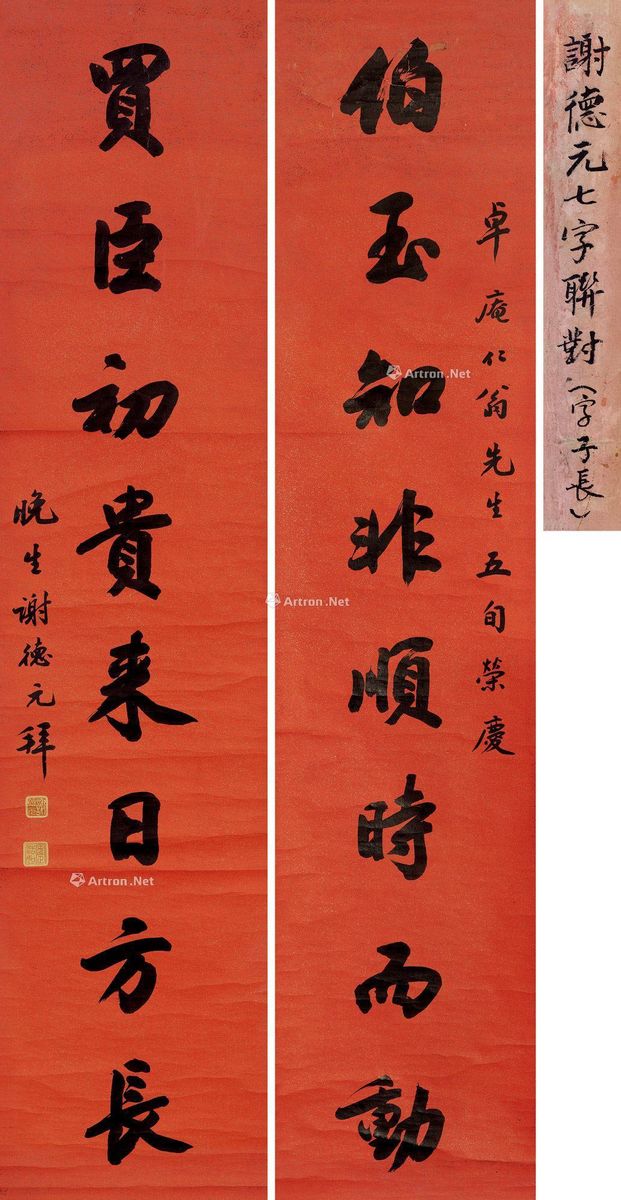 謝德元七字聯對(字子長)
卓庵仁翁先生五旬榮慶
伯玉知非順時而動
買臣初貴来日方長
晚生謝德元拜
Artron.Net
Artron.Net
Artron.Net